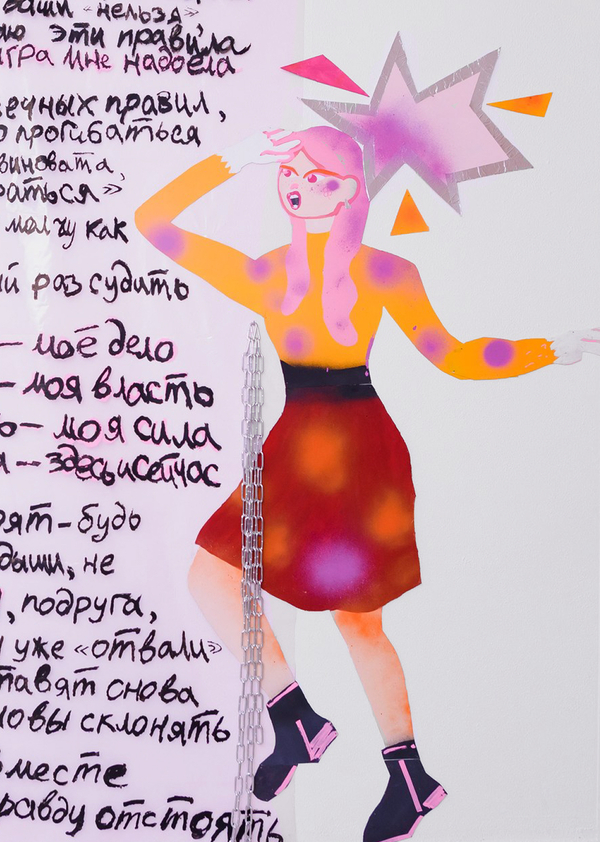 ваши «нельзя»
эти правила
игра мне надоела
вечных правил,
прогибаться
виновата,
молчу как
раз судить
— моё дело
— моя власть
— моя сила
— здесь и сейчас
— будь
дыши, не
подруга,
уже «отвали»
снова
склонять
вместе
правду отстоять